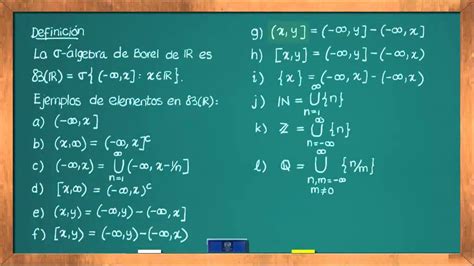 Definición
La σ-álgebra de Borel de ℝ es
𝔅(ℝ) = σ{(-∞,x] : x∈ℝ}.
Ejemplos de elementos en 𝔅(ℝ):
a) (-∞,x]
b) (x,∞) = (-∞,x]ᶜ
c) (-∞,x) = ⋃_{n=1}^{∞} (-∞,x-1/n]
d) [x,∞) = (-∞,x)ᶜ
e) (x,y) = (-∞,y) - (-∞,x]
f) [x,y) = (-∞,y) - (-∞,x)
g) (x,y] = (-∞,y] - (-∞,x]
h) [x,y] = (-∞,y] - (-∞,x)
i) {x} = (-∞,x] - (-∞,x)
j) ℕ = ⋃_{n=1}^{∞} {n}
k) ℤ = ⋃_{n=-∞}^{∞} {n}
l) ℚ = ⋃_{n,m=-∞ m≠0}^{∞} {n/m}